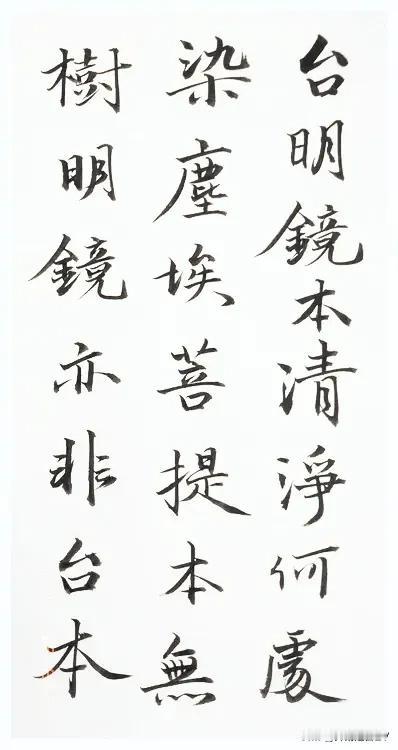 台明鏡本清淨何處
染塵埃菩提本無
樹明鏡亦非台本